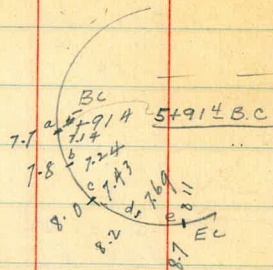 BC
a 5+914 5+91⁴ B.C
7.7 7.14
7.8 b 7.24
8.0 c 7.43
8.2 d 7.69
8.7 e 8.11
EC